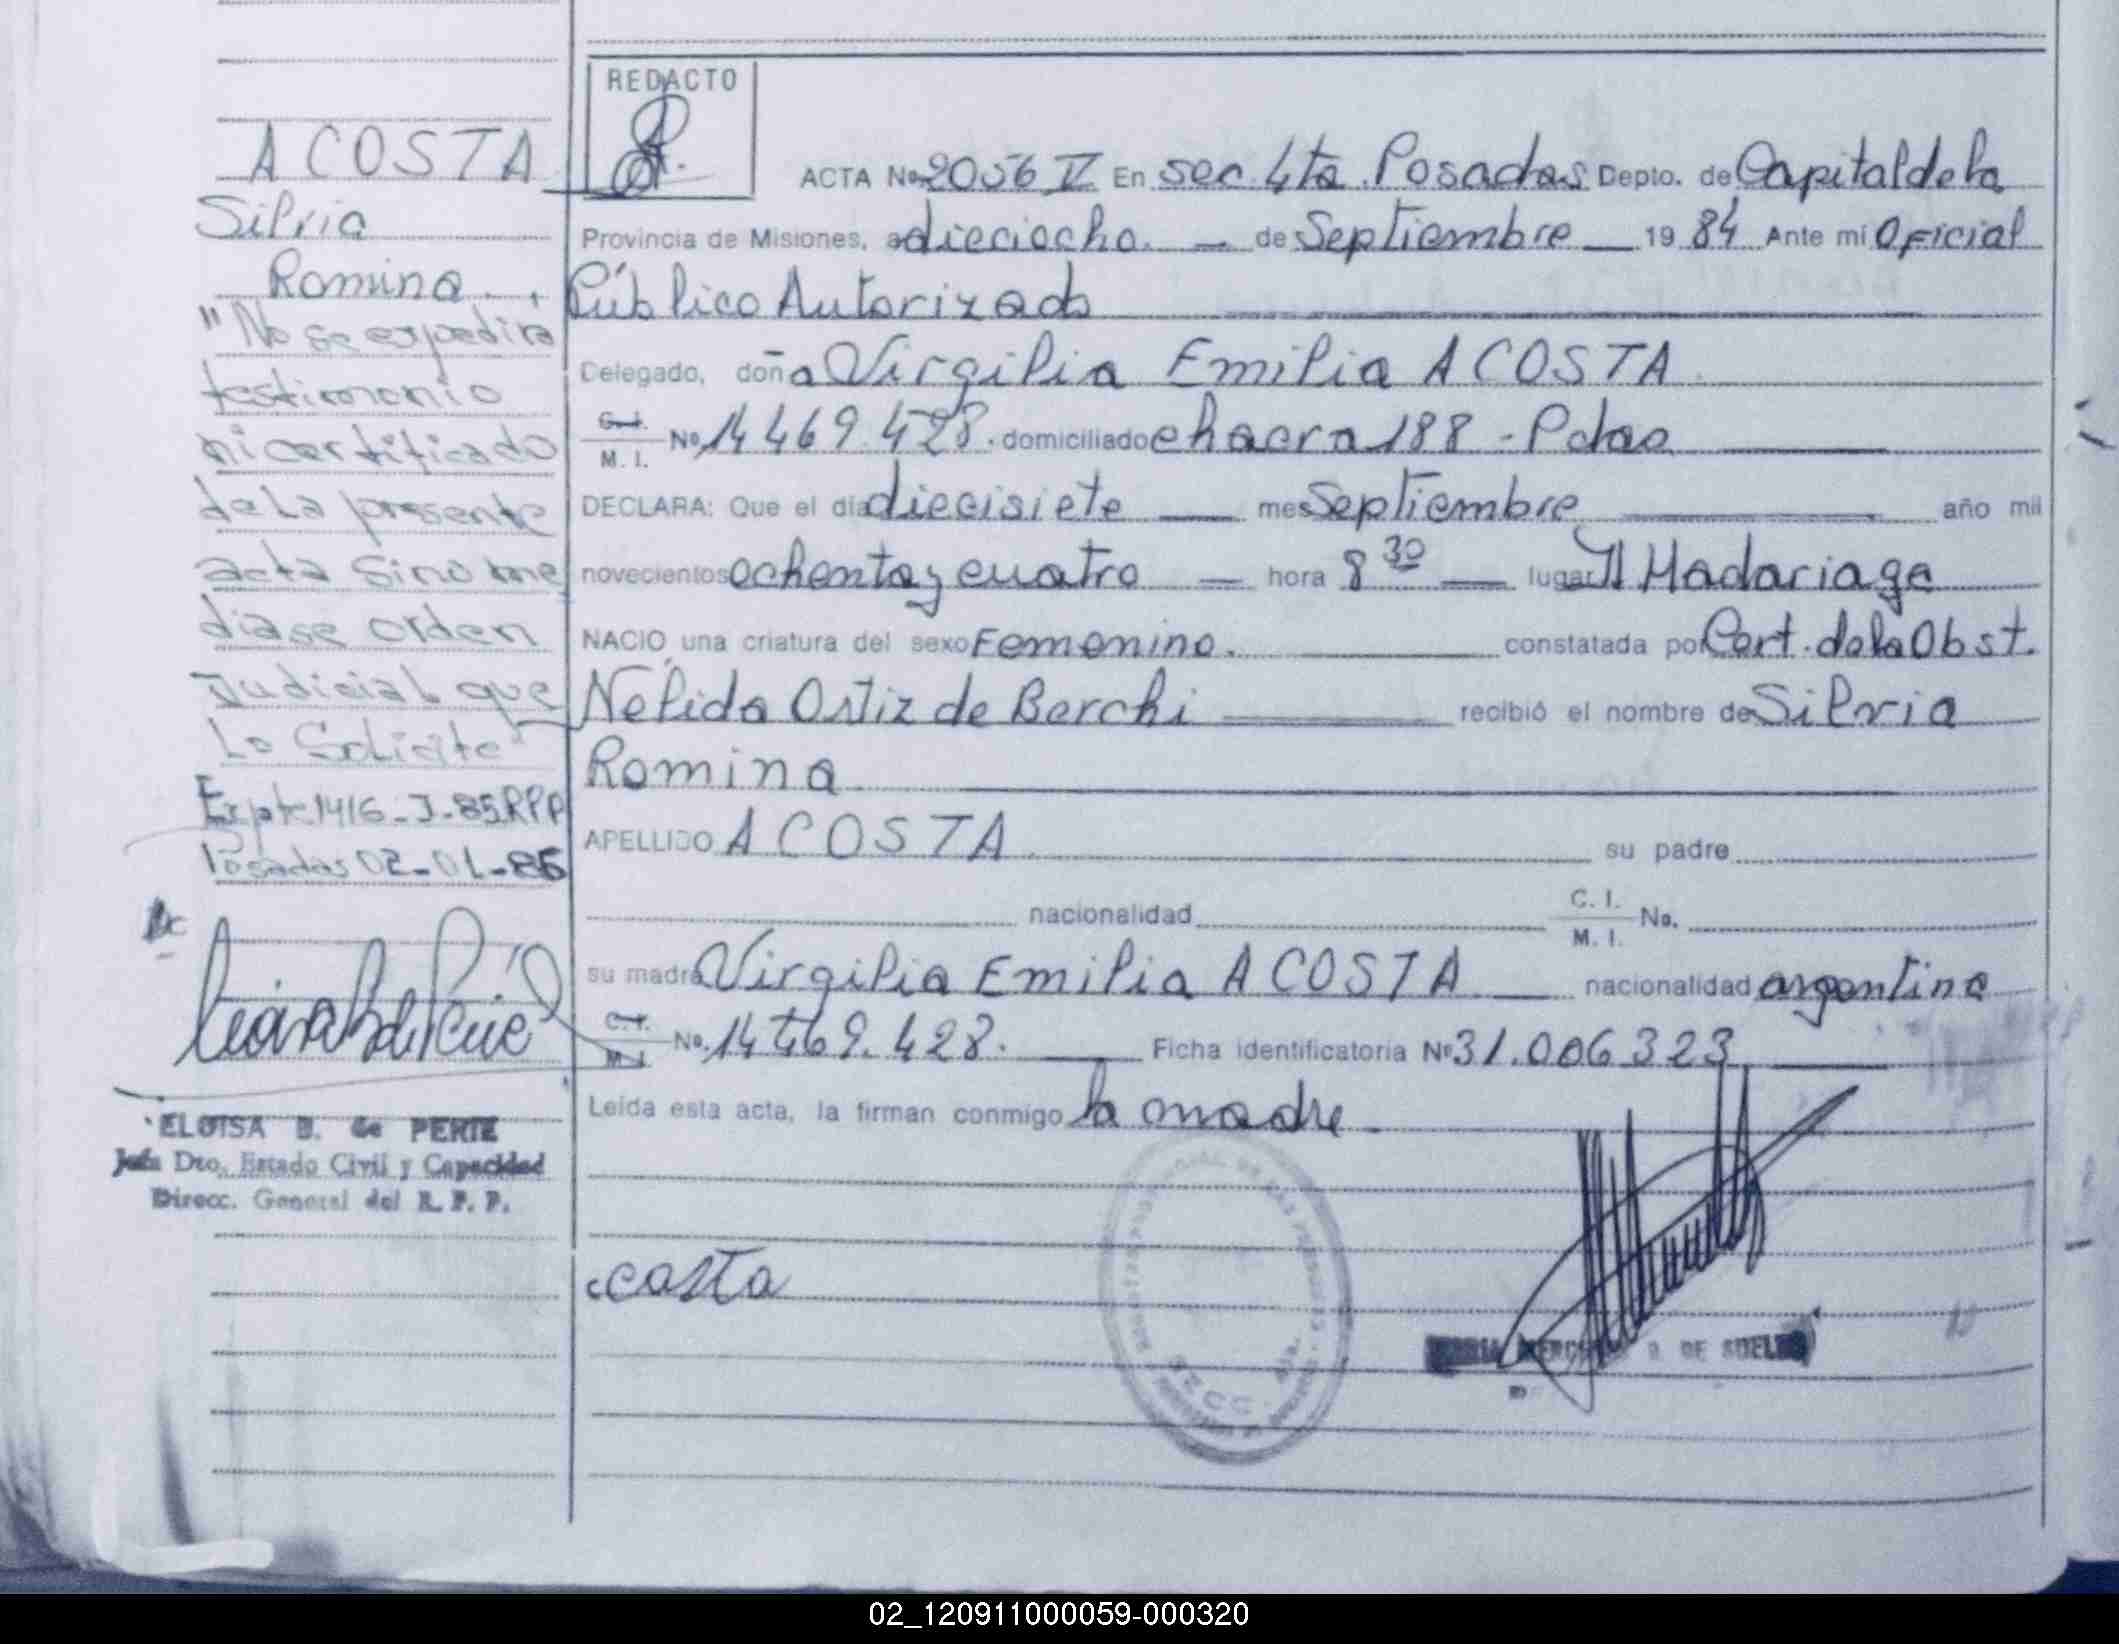 ACOSTA
Silvia
Romina
"No se expedirá
testimonio
ni certificado
de La presente
acta sino me
diase orden
Judicial que
Lo Solicite"
Expte 1416-J-85 RPP
Posadas 02-01-86
ELOISA B. de PERIE
Jefa Dto. Estado Civil y Capacidad
Direcc. General del R. P. P.
REDACTO
ACTA Nº 2056 V En sec 4ta Posadas Depto. de Capital de la
Provincia de Misiones, a dieciocho. — de Septiembre — 19 84 Ante mí Oficial
Público Autorizado
Delegado, doña Virgilia Emilia ACOSTA
C.I. M. I. Nº 14 469.428. domiciliado chacra 188 - Pdas
DECLARA: Que el día diecisiete — mes Septiembre — año mil
novecientos ochenta y cuatro — hora 8 30 — lugar H Madariaga
NACIO una criatura del sexo Femenino. — constatada por Cert. de la Obst.
Nélida Ortiz de Berchi — recibió el nombre de Silvia
Romina
APELLIDO ACOSTA su padre
nacionalidad C. I. M. I. No.
su madre Virgilia Emilia ACOSTA — nacionalidad argentina
C.I. M.I. No. 14 469.428. — Ficha identificatoria Nº 31.006 323
Leída esta acta, la firman conmigo la madre
costa
DE
02_120911000059-000320